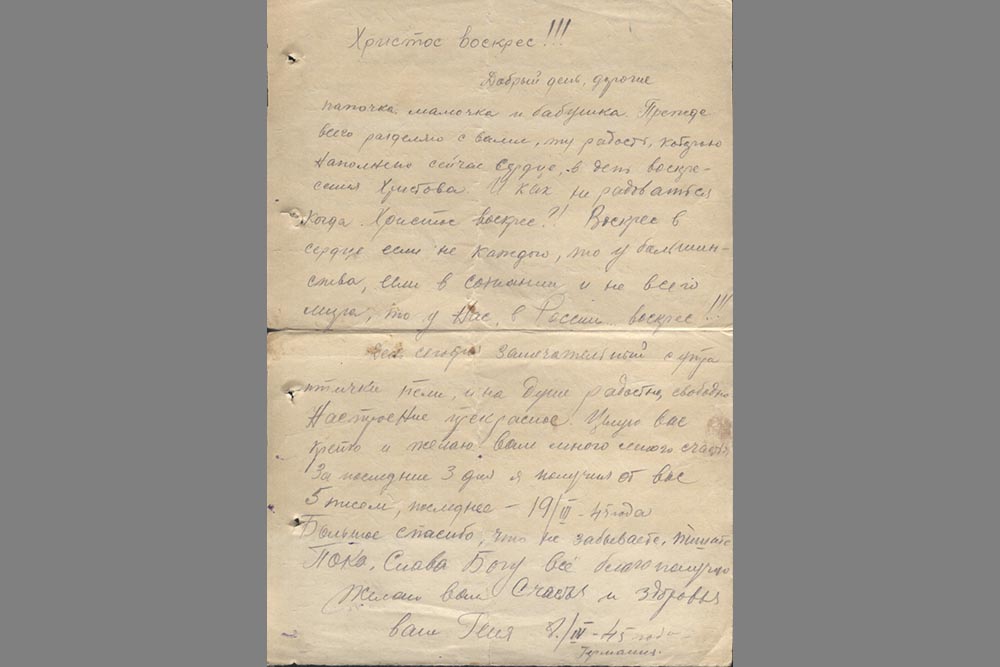 Христос воскрес!!!
Добрый день, дорогие
папочка мамочка и бабушка. Прежде
всего разделяю с вами, ту радость, которою
наполнено сейчас сердце, в день воскре-
сения Христова. И как не радоваться
когда Христос воскрес?! Воскрес в
сердце если не каждого, то у большин-
ства, если в сознании и не всего
мира, то у нас, в России воскрес!!!
День сегодня замечательный с утра
птички пели, и на душе радостно, свободно
Настроение прекрасное. Целую вас
крепко и желаю вам много много счастья
За последние 3 дня я получил от вас
5 писем, последнее - 19/III - 45 года
Большое спасибо, что не забываете, пишите
Пока, Слава Богу всё благополучно
Желаю вам счастья и здоровья
ваш /IV - 45 года
Германия.